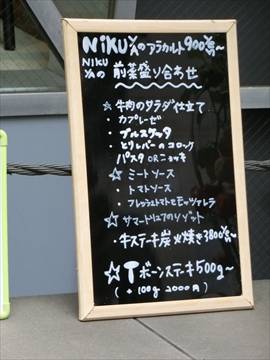 NIKU Yaの アラカルト 900~
NIKU Yaの 前菜盛り合わせ
☆ 牛肉のタタラダ仕立て
・カプレーゼ
・ブルスケッタ
・とりレバーのコロッケ
パスタ OR ニョッキ
☆ ミートソース
・トマトソース
・フレッシュトマトとモッツァレラ
☆サマートリュフのリゾット
・牛ステーキ炭火焼き3800~
☆Tボーンステーキ500g~
(+100g 2000円)